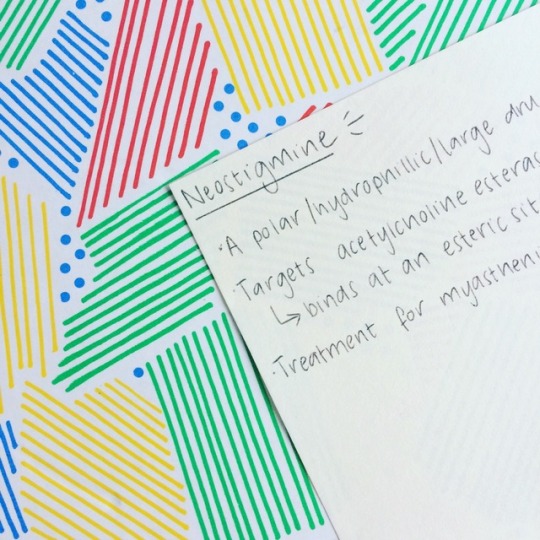 Neostigmine
· A polar/hydrophillic/large dru
· Targets acetylcholine esteras
↳ binds at an esteric sit
· Treatment for myastheni